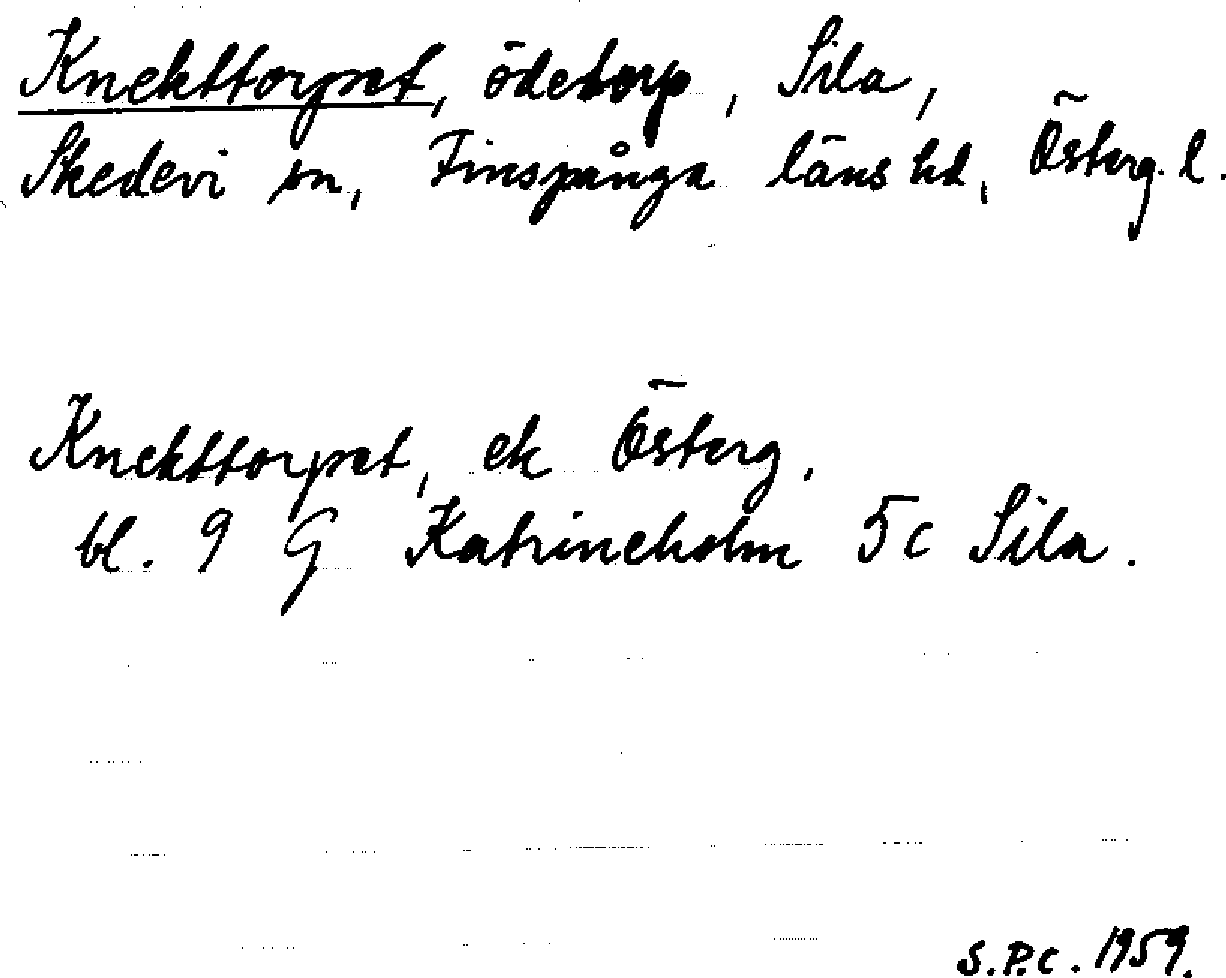 Knekttorpet, ödetorp, Sila,
Skedevi sn, Finspånga läns hd, Österg. l.
Knekttorpet, ek Österg.
bl. 9 G Katrineholm 5c Sila.
S.P.C. 1959.